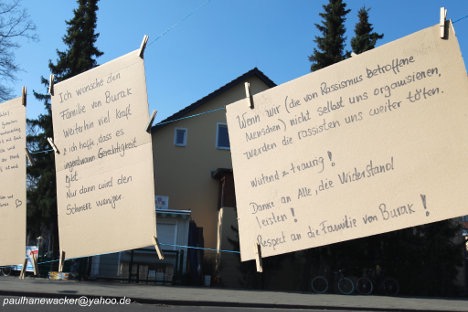 Ich wünsche den
Familie von Burak
weiterhin viel Kraft
Ich hoffe, dass es
irgendwann Gerechtigkeit
gibt
Nur dann wird den
Schmerz weniger
Wenn wir (die von Rassismus betroffene
Menschen) nicht selbst uns organisieren,
werden die rassisten uns weiter töten.
wütend + traurig!
Danke an Alle, die Widerstand
leisten!
Respect an die Familie von Burak!
paulhanewacker@yahoo.de